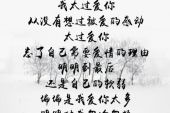 我太过爱你
从没有想过被爱的感动
太过爱你
忘了自己需要爱情的理由
明明到最后
还是自己的软弱
偏偏是我爱你太多